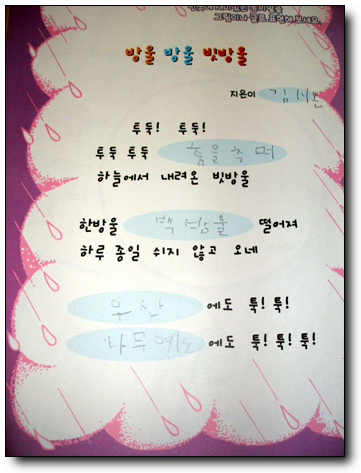 그림이나 글로 표현해 보세요.
방울 방울 빗방울
지은이 김시온
투둑! 투둑!
투둑 투둑 춤을 추며
하늘에서 내려온 빗방울
한방울 백방울 떨어져
하루 종일 쉬지 않고 오네
우산에도 톡! 톡!
나무에도에도 톡! 톡! 톡!